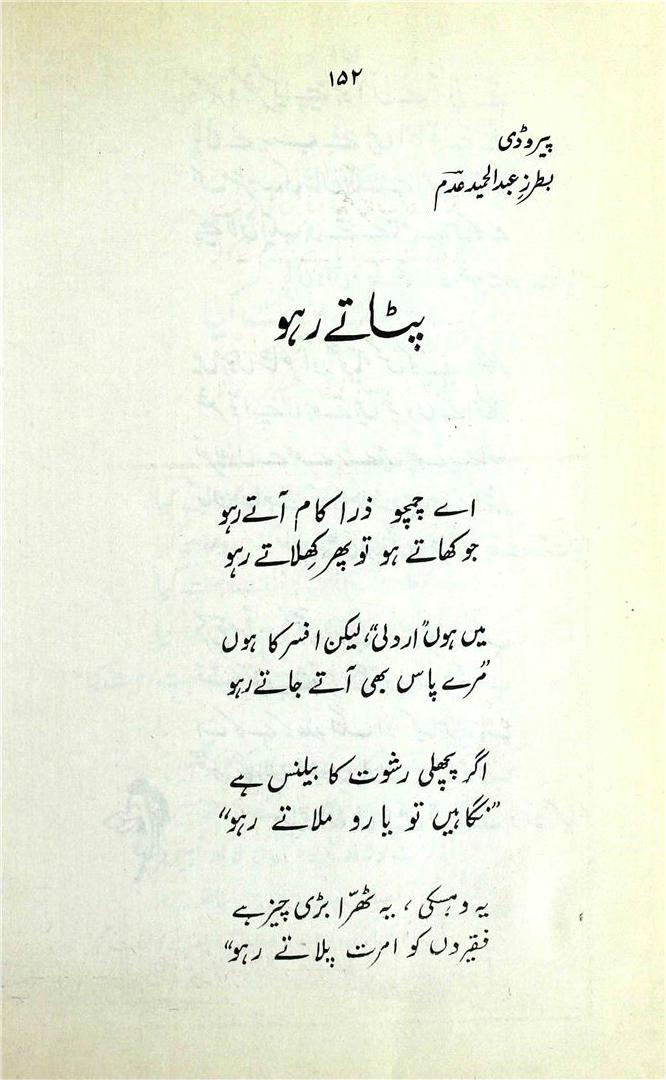 ۱۵۲
پیروڈی
بطرزِ عبدالحمید عدمؔ
پٹاتے رہو
اے چمچو ذرا کام آتے رہو
جو کھاتے ہو تو پھر کھِلاتے رہو
میں ہوں "اردلی"، لیکن افسر کا ہوں
"مرے پاس بھی آتے جاتے رہو
اگر پچھلی رشوت کا بیلنس ہے
"نگاہیں تو یارو ملاتے رہو"
یہ وہسکی، یہ ٹھرّا بڑی چیز ہے
فقیروں کو امرت پلاتے رہو"